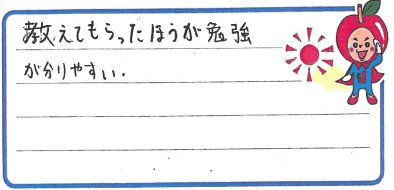 教えてもらったほうが勉強
が分りやすい.